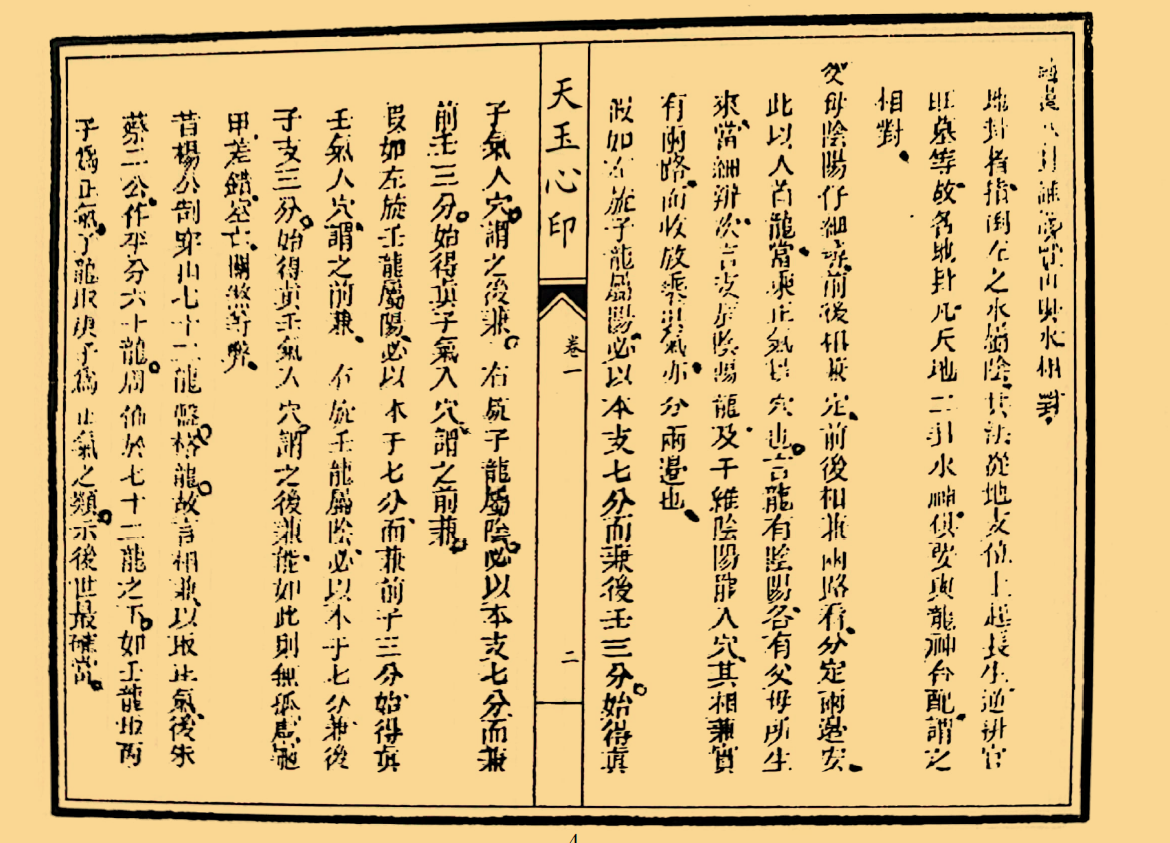 地卦誰爲當山與水相對
地卦者指倒左之水屬陰其法從地支位上起長生逆辨官
旺墓等故名地卦凡天地二卦水神俱要與龍神合配謂之
相對
父母陰陽仔細尋前後相兼定前後相兼兩路看分定兩邊安
此以人首龍當乘正氣穴也言龍有陰陽各有父母所生
來當細辨次言支辰陰陽龍及干維陰陽龍入穴其相兼實
有兩路而收放乘氣亦分兩邊也
假如左旋子龍屬陽必以本支七分而兼後壬三分始得眞
天玉心印
卷一
二
子氣入穴謂之後兼右旋子龍屬陰必以本支七分而兼
前壬三分始得眞子氣入穴謂之前兼
假如左旋壬龍屬陽必以本干七分而兼前子三分始得眞
壬氣入穴謂之前兼右旋壬龍屬陰必以本干七分兼後
子支三分始得眞壬氣入穴謂之後兼能如此則無孤虛龜
甲差錯空亡關煞等弊
昔楊公制穿山七十二龍盤格龍故言相兼以取正氣後朱
蔡二公作平分六十龍周佈於七十二龍之下如壬龍取丙
子爲正氣子龍取庚子爲正氣之類示後世最確當
4